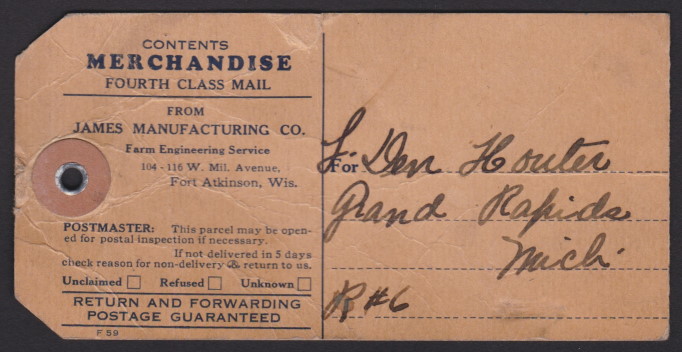 CONTENTS
MERCHANDISE
FOURTH CLASS MAIL
FROM
JAMES MANUFACTURING CO.
Farm Engineering Service
104-116 W. Mil. Avenue,
Fort Atkinson, Wis.
POSTMASTER: This parcel may be open-
ed for postal inspection if necessary.
If not delivered in 5 days
check reason for non-delivery & return to us.
Unclaimed Refused Unknown
RETURN AND FORWARDING
POSTAGE GUARANTEED
F 59
For Den Houter
Grand Rapids
Mich.
R#6